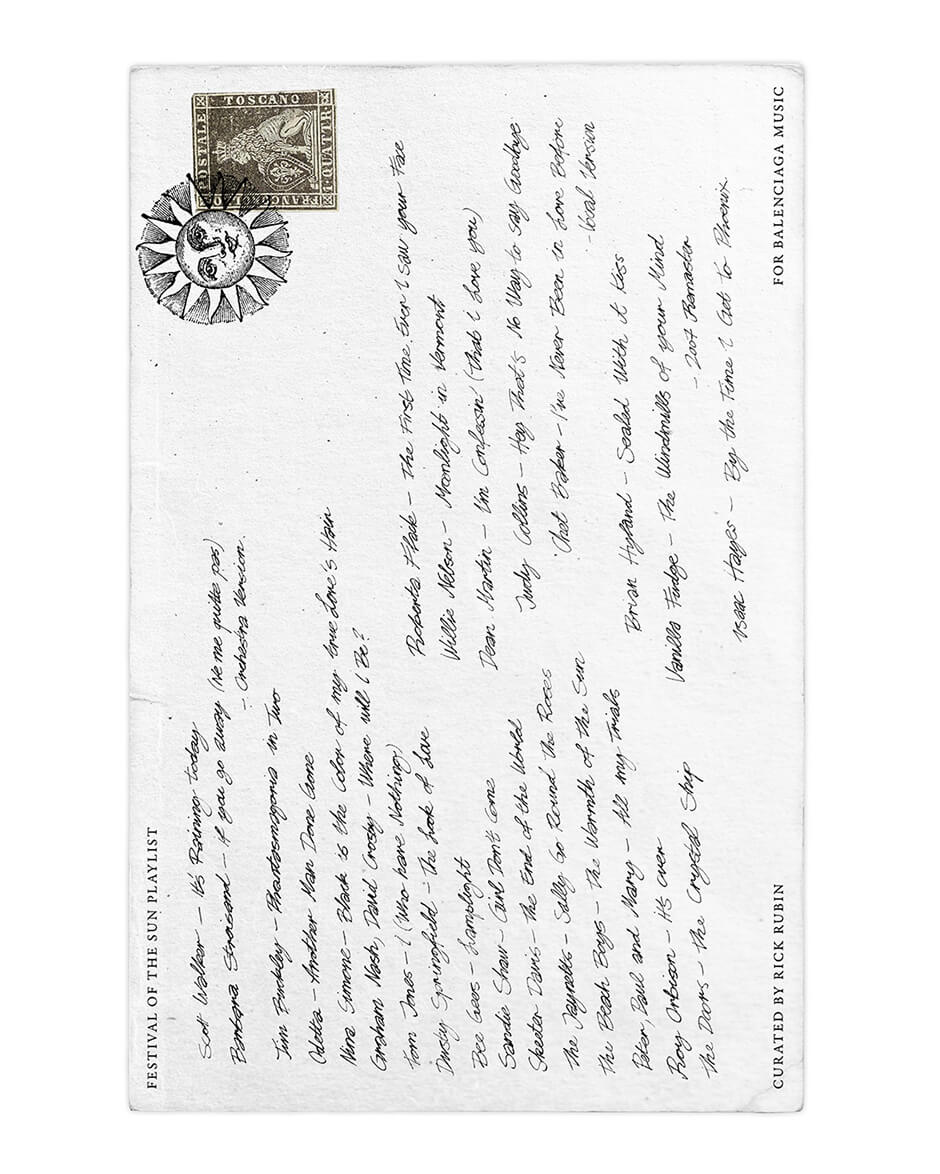 FESTIVAL OF THE SUN PLAYLIST
Scott Walker - It's Raining today
Barbara Streisand - if you go away (ne me quitte pas)
- Orchestra Version.
Tim Buckley - Phantasmagoria in Two
Odetta - Another Man Done Gone
Nina Simone - Black is the Color of my true Love's Hair
Graham Nash, David Crosby - Where will I Be?
Tom Jones - I (Who have Nothing)
Dusty Springfield - the Look of Love
Bee Gees - Lamplight
Sandie Shaw - Girl Don't Come
Skeeter Davis - the End of the World
The Jaynetts - Sally Go Round the Roses
the Beach Boys - the Warmth of the Sun
Peter, Paul and Mary - All my Trials
Roy Orbison - It's over
The Doors - the Crystal Ship
Roberta Flack - The First Time Ever I Saw your Face
Willie Nelson - Moonlight in Vermont
Dean Martin - I'm Confessin' (that I Love you)
Judy Collins - Hey, That's No Way to Say Goodbye
Chet Baker - I've Never Been in Love Before
- Vocal Version
Brian Hyland - Sealed With A Kiss
Vanilla Fudge - The Windmills of your Mind
- 2007 Remaster
Isaac Hayes - By the Time I Get To Phoenix.
CURATED BY RICK RUBIN
FOR BALENCIAGA MUSIC
TOSCANO
POSTALE
FRANCO
1·QUATTR·